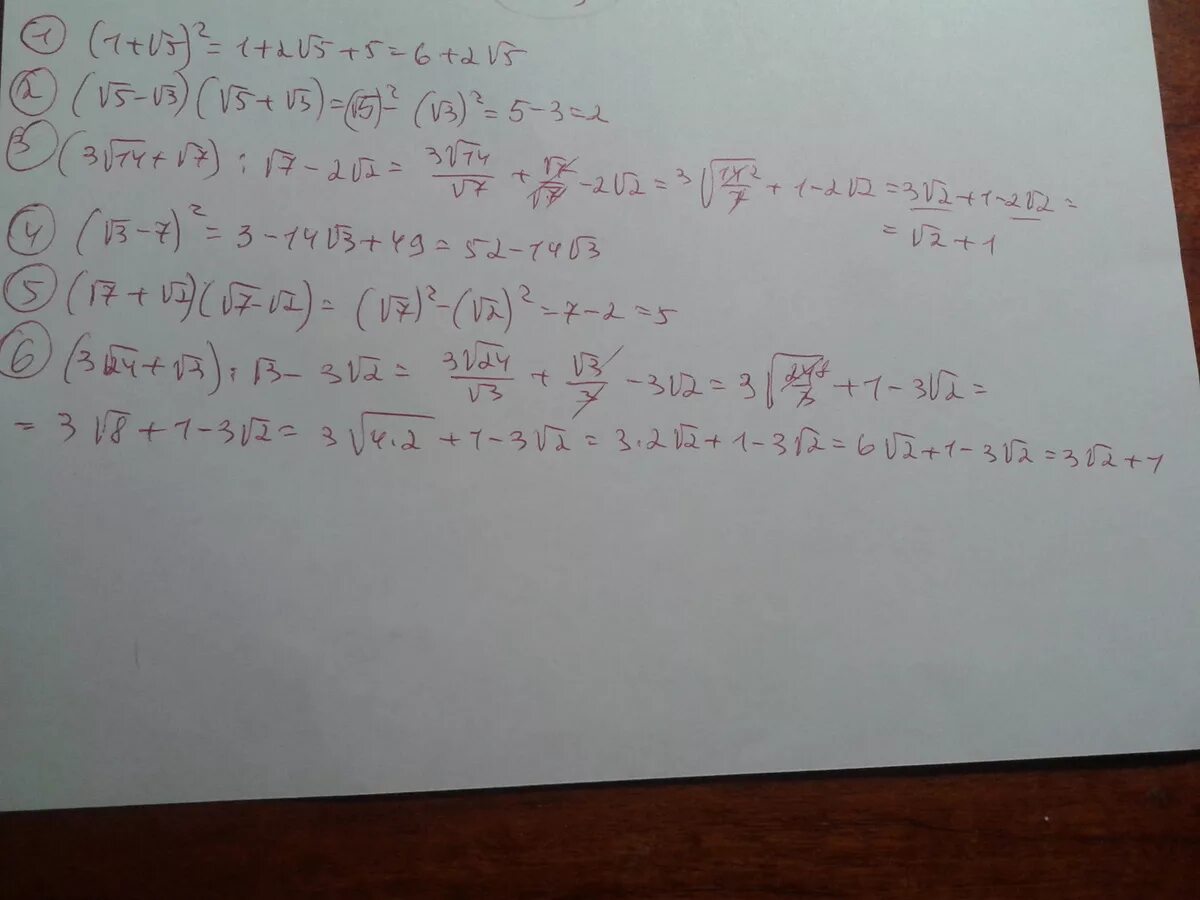 1 (1+√5)² = 1+2√5+5 = 6+2√5
2 (√5-√3)(√5+√3) = (√5)² - (√3)² = 5-3 = 2
3 (3√14+√7) : √7 - 2√2 = 3√14/√7 + √7/√7 - 2√2 = 3√(14²/7) + 1 - 2√2 = 3√2 + 1 - 2√2 =
= √2 + 1
4 (√3-7)² = 3-14√3+49 = 52-14√3
5 (√7+√2)(√7-√2) = (√7)² - (√2)² = 7-2 = 5
6 (3√24+√3) : √3 - 3√2 = 3√24/√3 + √3/3 - 3√2 = 3√(24⁸/3) + 1 - 3√2 =
= 3√8 + 1 - 3√2 = 3√(4·2) + 1 - 3√2 = 3·2√2 + 1 - 3√2 = 6√2 + 1 - 3√2 = 3√2 + 1